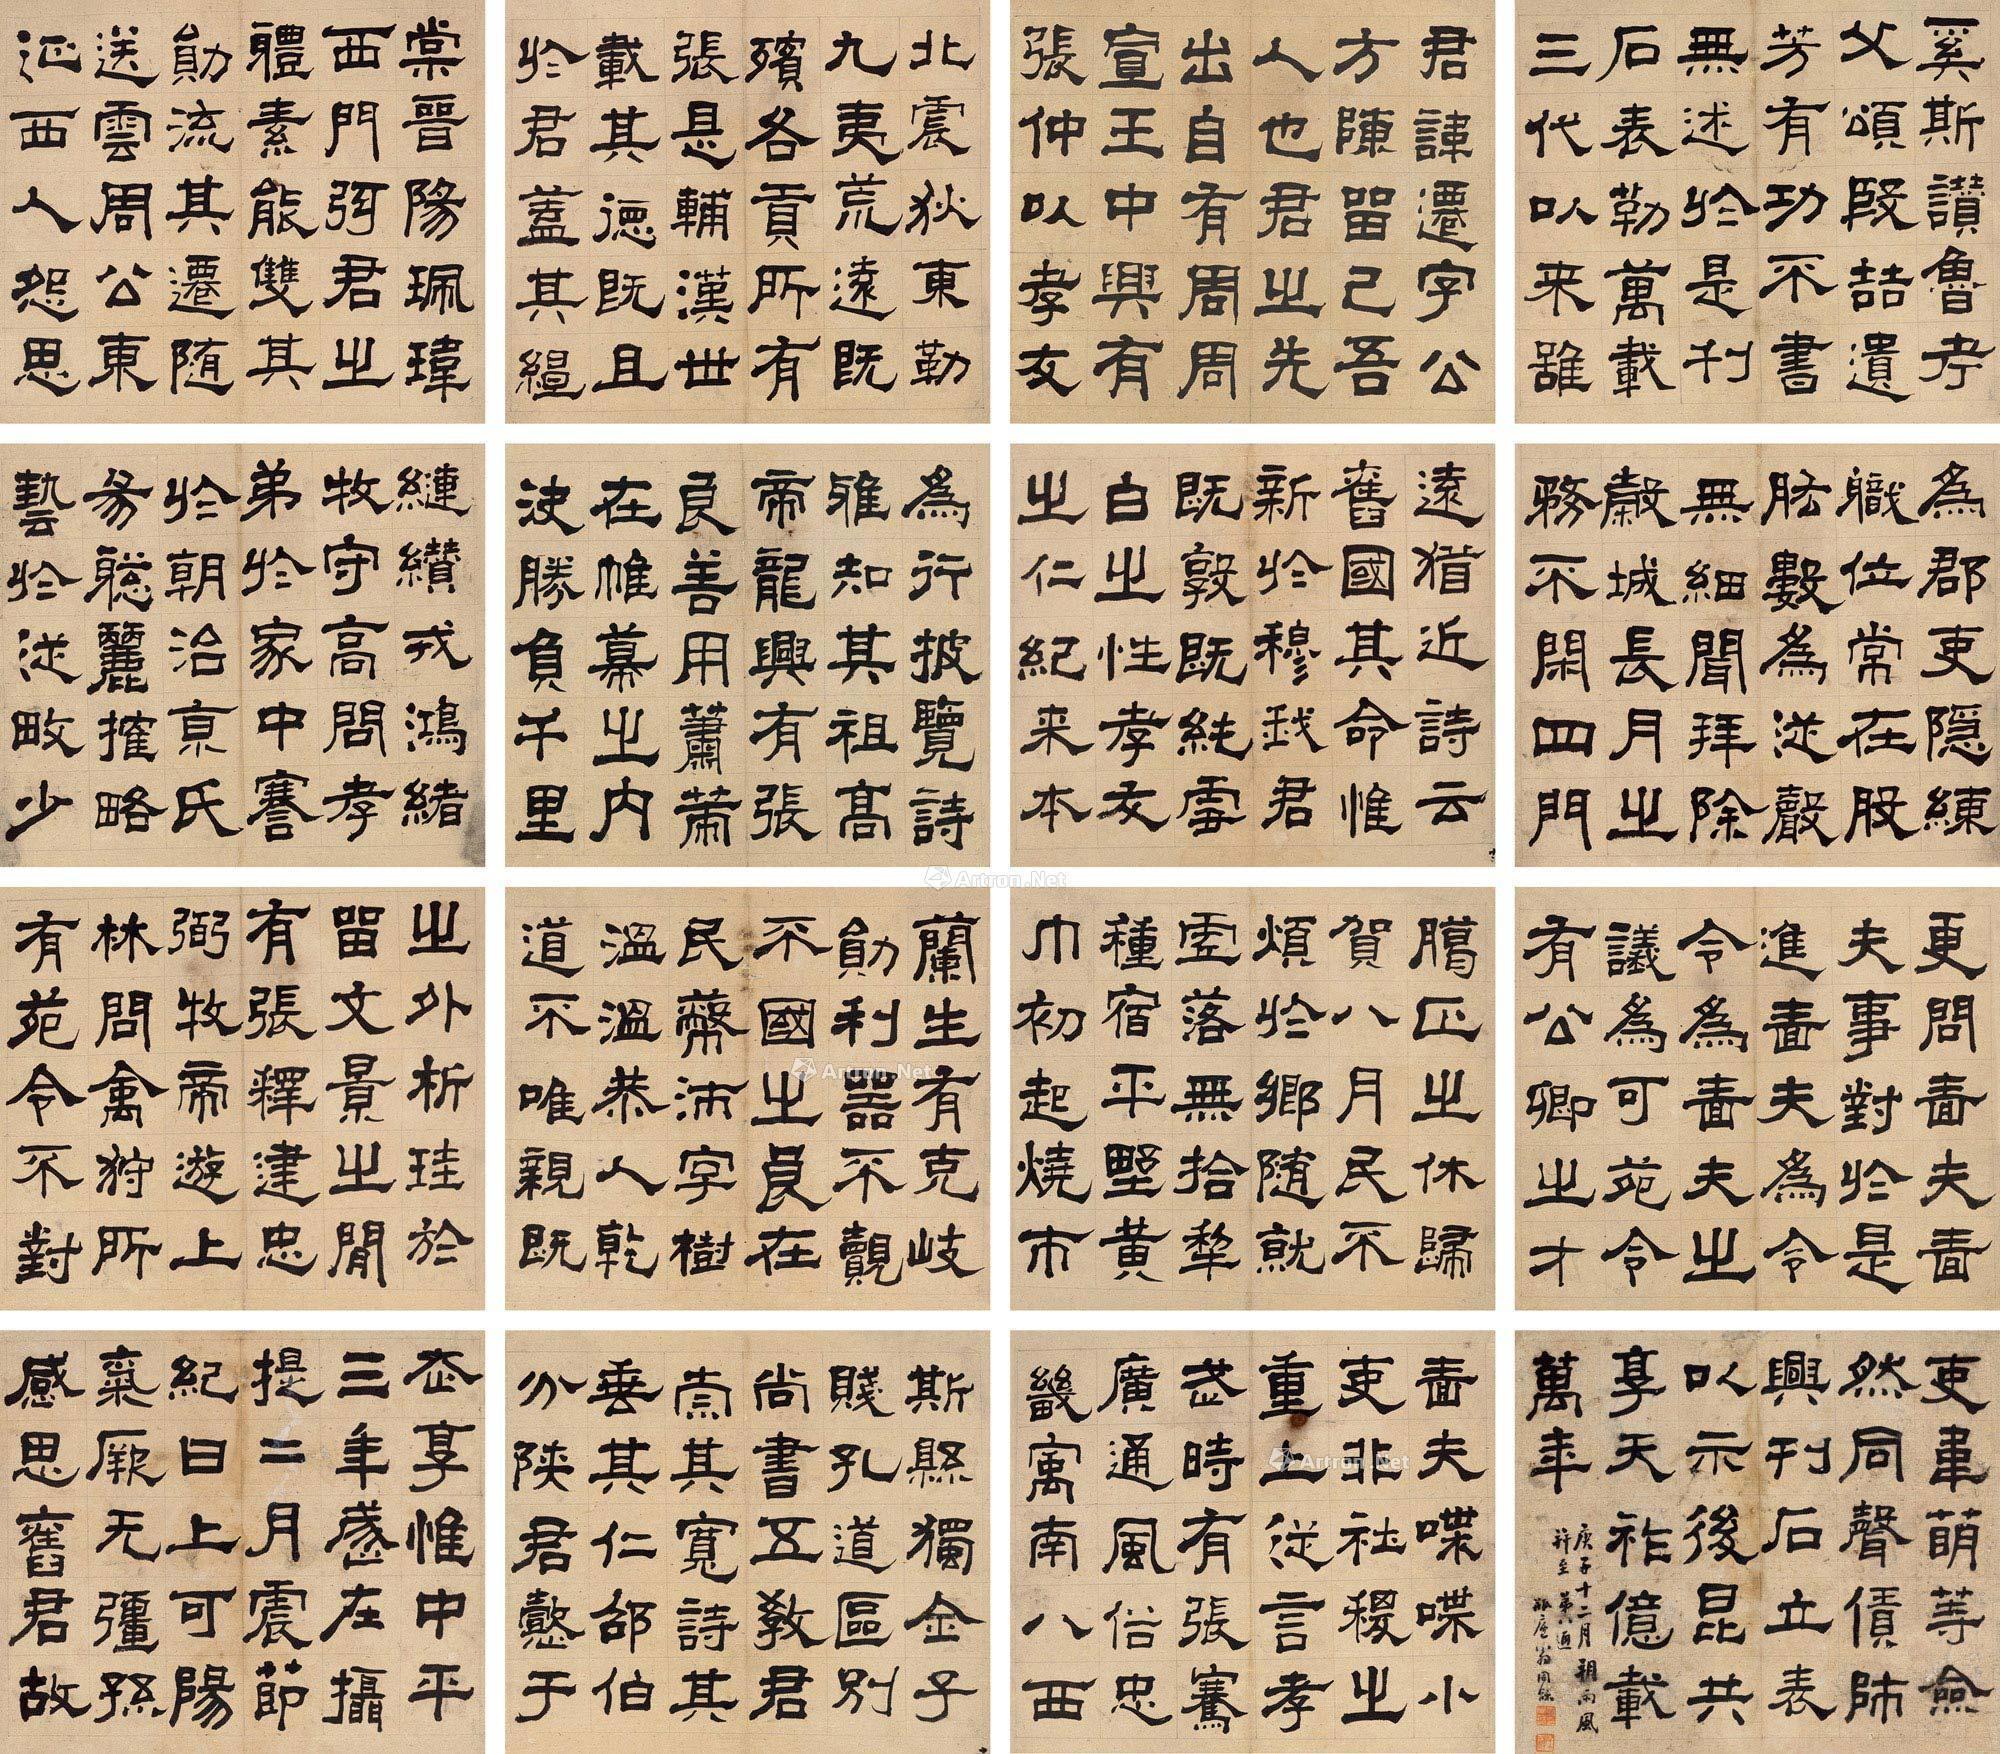 君諱遷字公
方陳留己吾
人也君之先
出自有周周
宣王中興有
張仲以孝友
為行披覽詩
雅知其祖高
帝龍興有張
良善用
在帷幕之內
決勝負千里
之外析珪於
留文景之間
有張釋建忠
弼牧帝遊上
林問禽狩所
有苑令不對
更問嗇夫嗇
夫事對於是
進嗇夫為令
令為嗇夫之
議為可苑令
有公卿之才
嗇夫喋喋小
吏非社稷之
重上從言孝
武時有張騫
廣通風俗忠
畿寓南八西
北震狄東勒
九夷荒遠既
殯各貢所有
張是輔漢世
載其德既且
於君蓋其繵
纏纘戎鴻緒
牧守高問孝
弟於家中謇
於朝治京氏
易聰麗權略
藝於從畋少
為郡吏隱練
職位常在股
肱數為從聲
無細聞拜除
穀城長月之
務不閉四門
臘正之休歸
賀八月民不
煩於鄉隨就
虛落無拾犁
種宿平野黃
巾初起燒市
斯縣獨金子
賤孔道區別
尚書五教君
崇其寬詩其
垂其仁邵伯
分陝君懿于
棠晉陽珮瑋
西門弦君之
體素能雙其
勛流其遷隨
送雲周公東
征西人怨思
奚斯讚魯考
父頌殷喆遺
芳有功不書
無述於是刊
石表勒萬載
三代以来雖
遠猶近詩云
舊國其命惟
新於穆我君
既敦既純雪
白之性孝友
之仁紀来本
蘭生有克岐
勛利器不覿
不國之良在
民蔽沛字樹
溫溫恭人乾
道不唯親既
丕享惟中平
三年歲在攝
提二月震節
紀日上可陽
氣厥无彊孫
感思舊君故
吏韋萌等僉
然同聲賃師
興刊石立表
以示後昆共
享天祚億載
萬年
庚子十二月朔雨風
第八通
瓶廬翁同龢
Artron.Net
Artron.Net
Artron.Net